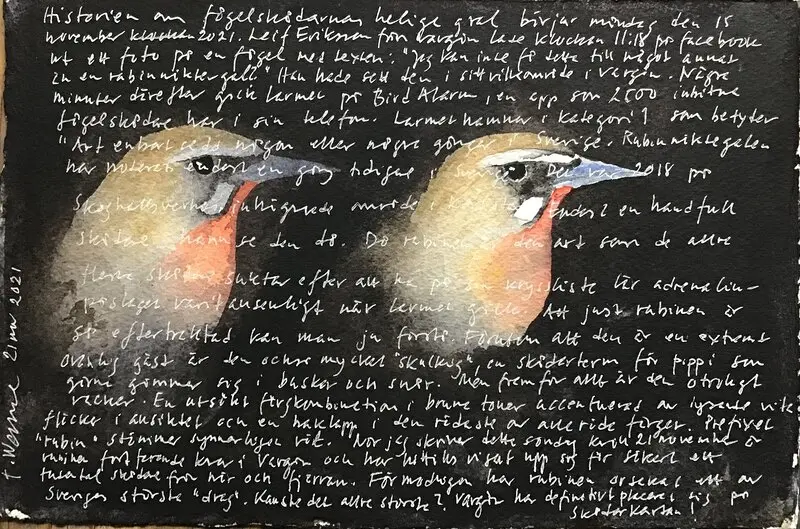 Historien om fågelskådarnas helige gral börjar måndag den 15
november klockan 2021. Leif Erikson från Vargön lade klockan 11:18 på facebook
ut ett foto på en fågel med texten: "Jag kan inte få detta till något annat
än en rubinnäktergal!" Han hade sett den i sitt villaområde i Vargön. Några
minuter därefter gick larmet på Bird Alarm, en app som 2500 inbitna
fågelskådare har i sin telefon. Larmet hamnar i kategori 1 som betyder
"Art enbart sedd någon eller några gånger i Sverige. Rubinnäktergalen
har noterats endast en gång tidigare i Sverige. Det var 2018 på
Skoghallsverkens inhägnade område i Endast en handfull
skådare hann se den då. Då rubinen är den art som de allra
flesta skådare suktar efter att ha på sin krysslista lär adrenalin-
påslaget varit ansenligt när larmet gick. Att just rubinen är
så eftertraktad kan man ju förstå. Förutom att den är en extremt
ovanlig gäst är den också mycket "skulkig", en skådarterm för pippi som
gärna gömmer sig i buskar och snår. Men framför allt är den otroligt
vacker. En utsökt färgkombination i bruna toner accentuerad av lysande vita
fläckar i ansiktet och en haklapp i den rödaste av alla röda färger. Prefixet
"rubin" stämmer synnerligen väl. När jag skriver detta söndag kväll 21 november är
rubinen fortfarande kvar i Vargön och har hittills visat upp sig för säkert ett
tusental skådare från när och fjärran. Förmodligen har rubinen orsakat ett av
Sveriges största "drag". Kanske det allra största? Vargön har definitivt placerat sig på
skådarkartan!
T. Wernd 21 nov 2021